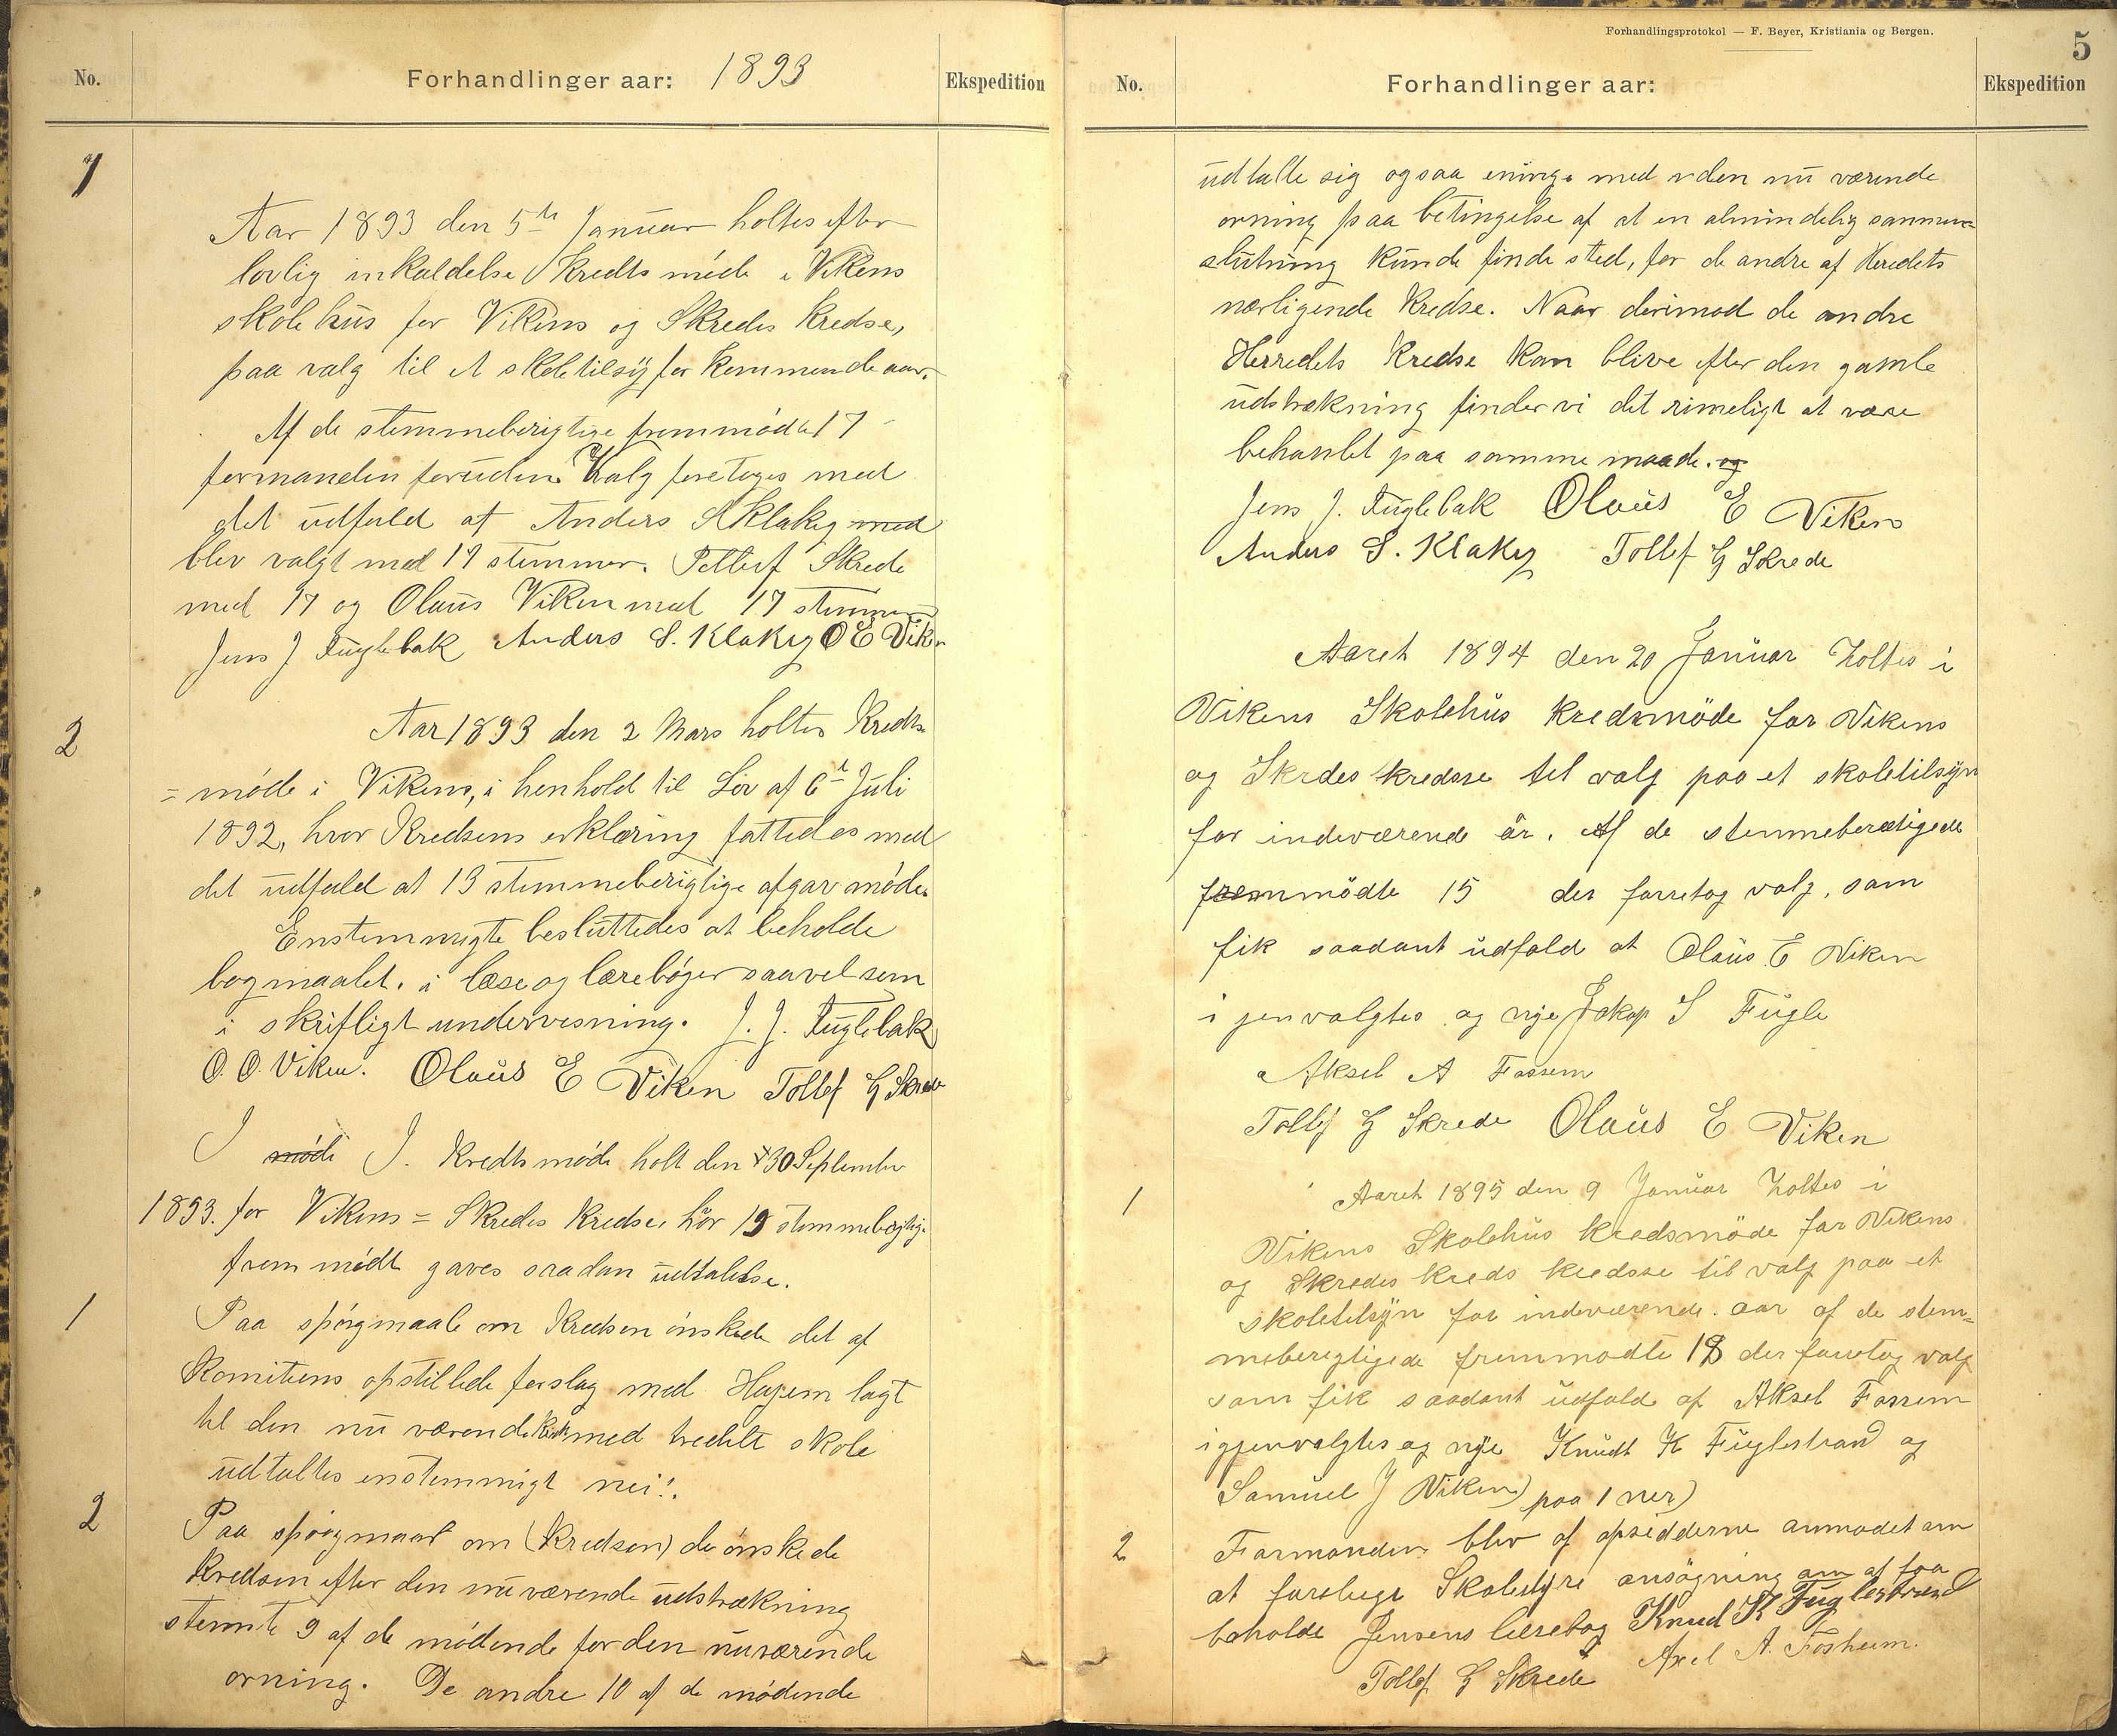 No.
Forhandlinger aar: 1893
Ekspedition
1
Aar 1893 den 5te Januar holtes efter
lovlig inkaldelse Kredts møde i Vikens
skolehus for Vikens og Skredes Kredse,
paa valg til et skoletilsÿ for kommende aar.
Af de stemmeberigtige fremmødte 17
formanden foruden. Valg foretoges med
det udfald at Anders S Klakeg med
blev valgt med 17 stemmer. Pettef Skrede
med 17 og Olaus Viken med 17 stemmer
Jens J Fuglebak Anders S. Klakeg O E Viken
2
Aar 1893 den 2 Mars holtes Kredts
= møde i Vikens, i henhold til Lov af 6te Juli
1892, hvor Kredsens erklæring fattedes med
det udfald at 13 stemmeberigtige afgav møde.
Enstemmigte besluttedes at beholde
bogmaalet. i læse og lærebøger saavel som
i skriftligt undervisning. J. J. Fuglebak
O. O. Viken. Olaus E Viken Tollef G Skrede
I møde J. Kredts møde holt den 30 September
1893. for Vikens = Skredes Kredse, hvor 19 stemmebegtige
frem mødt gaves saadan udtalelse.
1
Paa spørgmaale om Kredsen ønskede det af
Komiteens opstillede forslag med Hagem lagt
til den nu værende Kreds med tredelt skole
udtaltes enstemmigt nei!.
2
Paa spørgmaal om (Kredsen) de ønskede
Kredsen efter den nu værende udstrækning
stemte 9 af de mødende for den nuværende
orning. De andre 10 af de mødende
Forhandlingsprotokol — F. Beyer, Kristiania og Bergen.
5
No.
Forhandlinger aar:
Ekspedition
udtalte sig ogsaa eninge med den nu værende
orning paa betingelse af at en almindelig sammen=
slutning kunde finde sted, for de andre af Heredets
nærligende Kredse. Naar derimod de andre
Herredets Kredse kan blive efter den gamle
udstrækning finder vi det rimeligt at være
behanlet paa samme maade. og
Jens J. Fuglebak Olaus E Viken
Anders S. Klakeg Tollef G Skrede
Aaret 1894 den 20 Januar holtes i
Vikens Skolehus kredsmöde for Vikens
og Skredes kredsse tel valg paa et skoletilsÿn
for indeværende år. Af de stemmeberætigede
fremmödte 15 der forretog valg, som
fik saadant udfald at Olaus E Viken
i jenvalgtes og nye Jakop S Fugle
Aksel A Fossem
Tollef G Skrede Olaus E Viken
1
Aaret 1895 den 9 Januar holtes i
Vikens Skolehus kredsmöde for Vikens
og Skredes kreds kredsse til valg paa et
skoletelsÿn for indeværende. aar af de stem=
meberegtigede fremmødte 18 der forretog valg
som fik saadant udfald af Aksel Fossem
igjenvalgtes og nye Knudt K Fuglestrand og
Samuel J Viken) paa 1 ner)
2
Formanden blev af opsidderne anmodet om
at forelege Skolestyre ansøgning om at faa
beholde Jensens lærebog Knud K Fuglestrand
Tollef G Skrede Axel A. Fosheim.